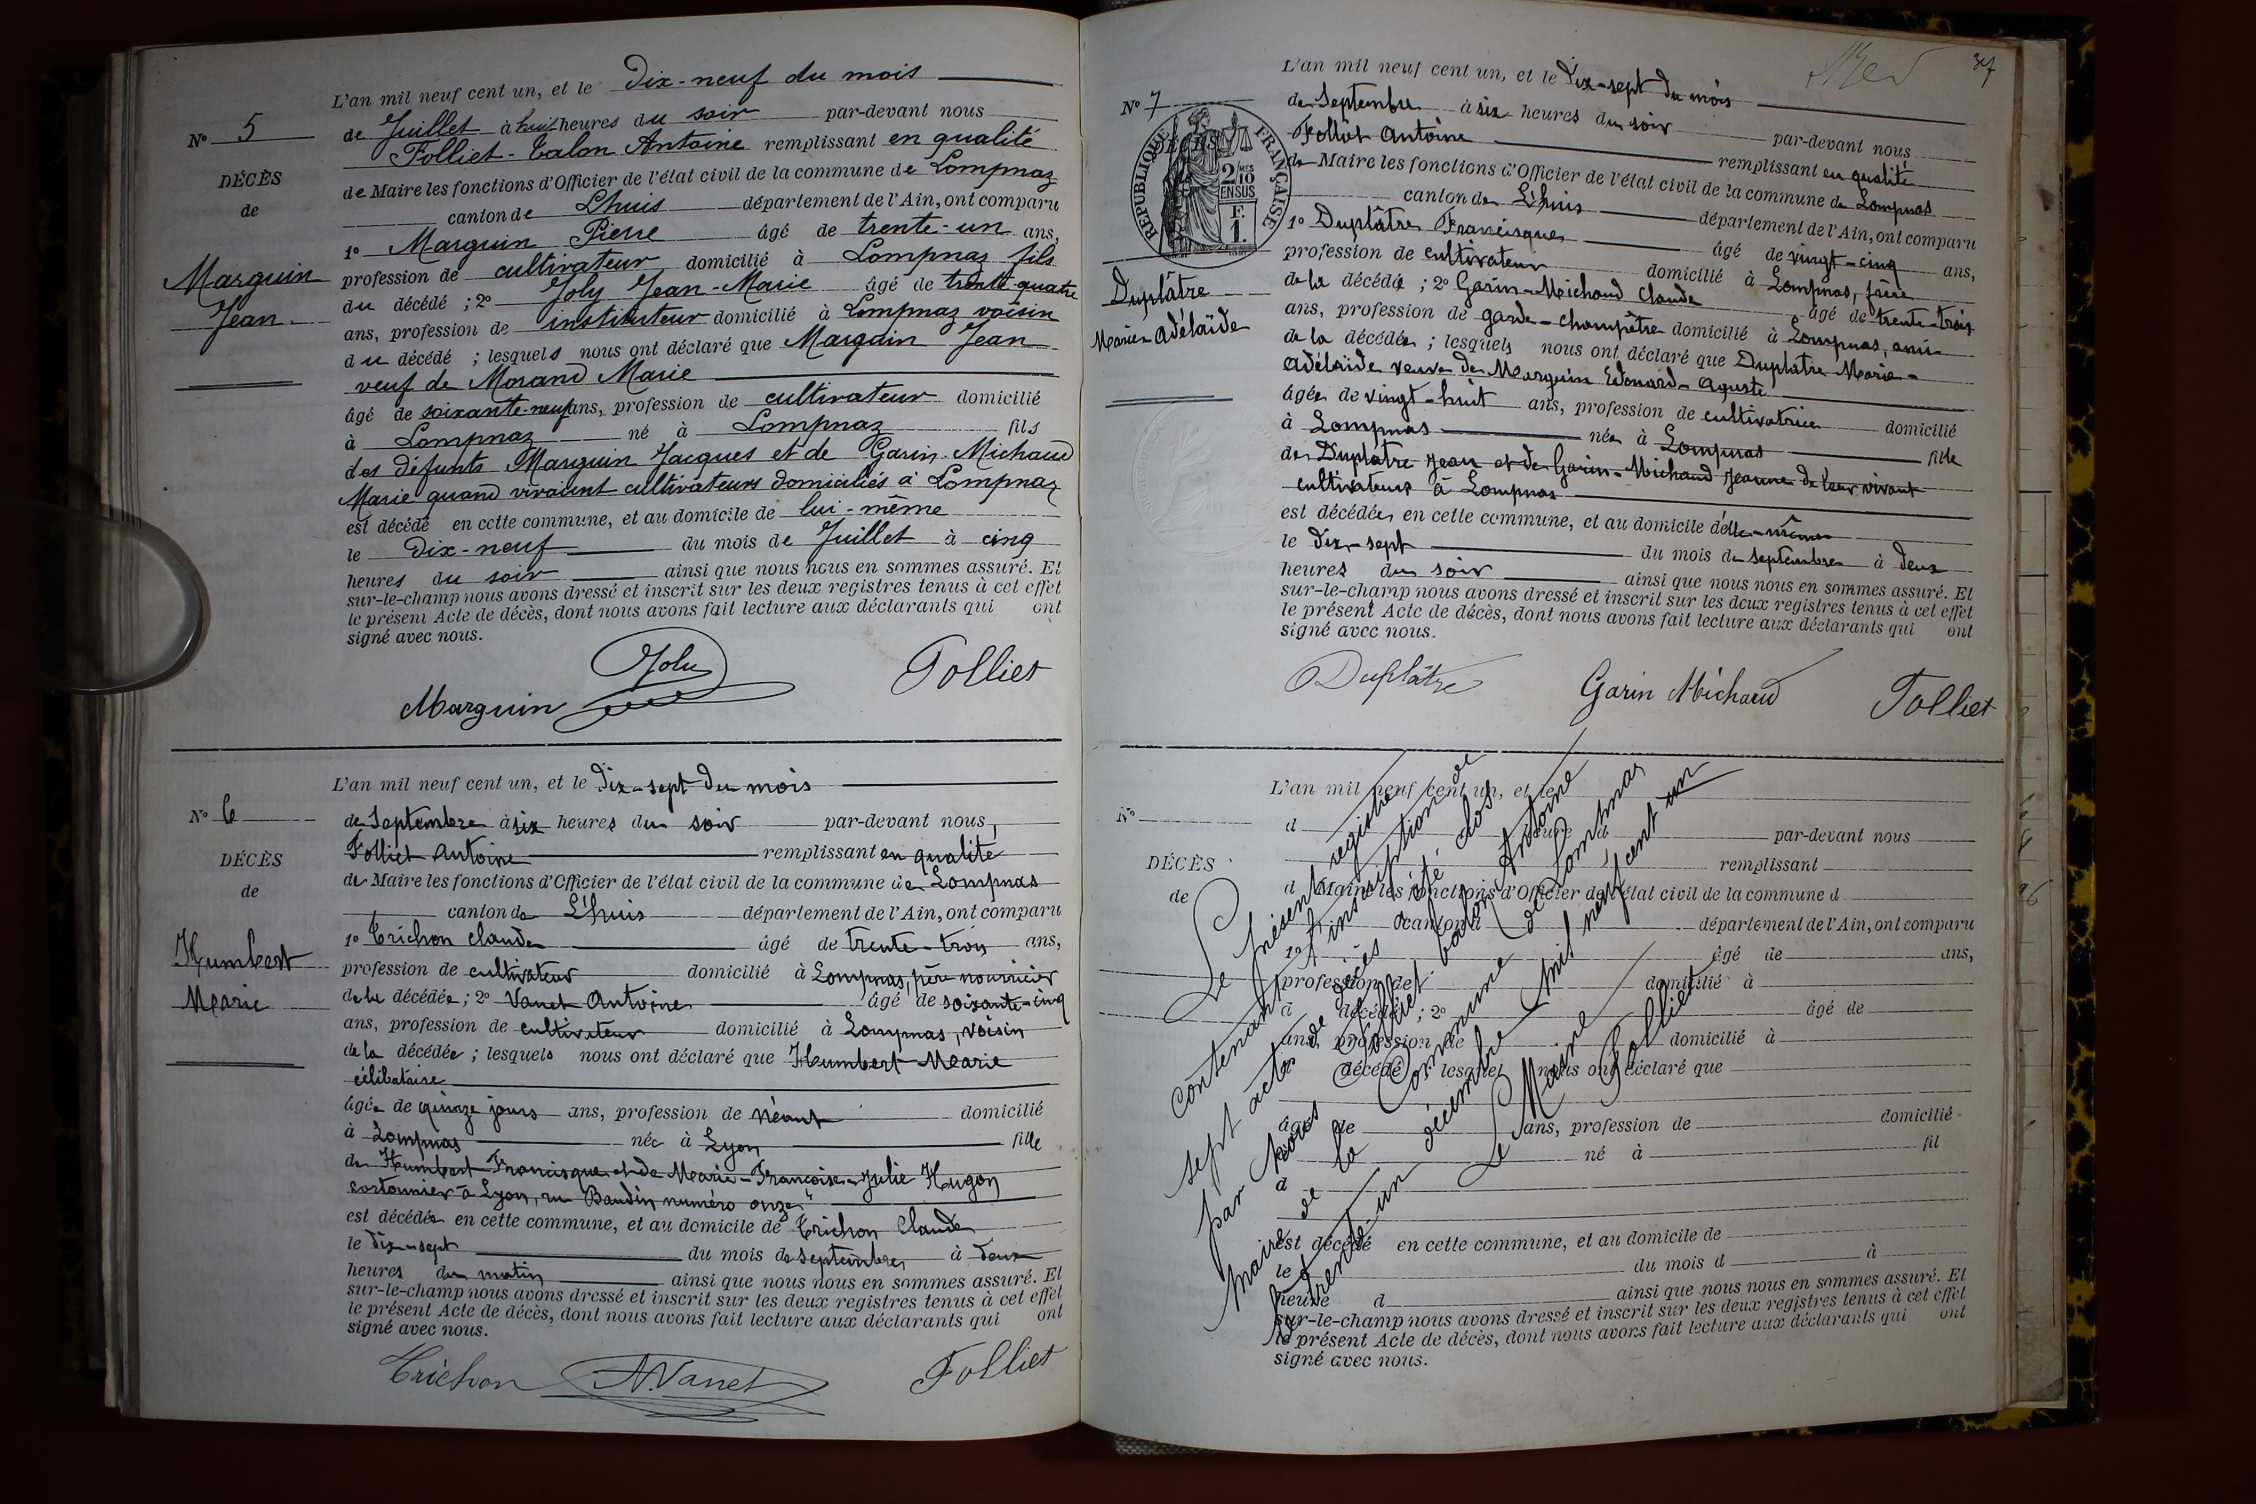 L'an mil neuf cent un, et le Dix-neuf du mois
N° 5
de Juillet à huit heures du soir par-devant nous
Folliet-Talon Antoine remplissant en qualité
DÉCÈS
de Maire les fonctions d'Officier de l'état civil de la commune de Lompnaz
de
canton de Lhuis département de l'Ain, ont comparu
1° Marguin Pierre âgé de trente-un ans,
Marguin
profession de cultivateur domicilié à Lompnaz fils
Jean
du décédé ; 2° Joly Jean-Marie âgé de trente-quatre
ans, profession de instituteur domicilié à Lompnaz voisin
du décédé ; lesquels nous ont déclaré que Marguin Jean
veuf de Morand Marie
âgé de soixante-neuf ans, profession de cultivateur domicilié
à Lompnaz né à Lompnaz fils
des défunts Marguin Jacques et de Garin-Michaud
Marie quand vivaient cultivateurs domiciliés à Lompnaz
est décédé en cette commune, et au domicile de lui-même
le Dix-neuf du mois de Juillet à cinq
heures du soir ainsi que nous nous en sommes assuré. Et
sur-le-champ nous avons dressé et inscrit sur les deux registres tenus à cet effet
le présent Acte de décès, dont nous avons fait lecture aux déclarants qui ont
signé avec nous.
Joly
Folliet
Marguin
L'an mil neuf cent un, et le Dix-sept du mois
N° 6
de Septembre à six heures du soir par-devant nous,
Folliet Antoine remplissant en qualité
DÉCÈS
de Maire les fonctions d'Officier de l'état civil de la commune de Lompnas
de
canton de L'huis département de l'Ain, ont comparu
1° Trichon Claude âgé de trente-trois ans,
Humbert
profession de cultivateur domicilié à Lompnas, père nourricier
Marie
de la décédée ; 2° Vanet Antoine âgé de soixante-cinq
ans, profession de cultivateur domicilié à Lompnas, voisin
de la décédée ; lesquels nous ont déclaré que Humbert Marie
célibataire
âgée de quinze jours ans, profession de néant domicilié
à Lompnas née à Lyon fille
de Humbert Francisque et de Marie-Françoise-Julie Hugon
cartonnier à Lyon, rue Baudin numéro onze
est décédée en cette commune, et au domicile de Trichon Claude
le dix-sept du mois de septembre à deux
heures du matin ainsi que nous nous en sommes assuré. Et
sur-le-champ nous avons dressé et inscrit sur les deux registres tenus à cet effet
le présent Acte de décès, dont nous avons fait lecture aux déclarants qui ont
signé avec nous.
Trichon
A. Vanet
Folliet
37
L'an mil neuf cent un, et le Dix-sept du mois
N° 7
de Septembre à six heures du soir par-devant nous
Folliet Antoine remplissant en qualité
DÉCÈS
RÉPUBLIQUE FRANÇAISE
2/10 MES
EN SUS
1 F.
de Maire les fonctions d'Officier de l'état civil de la commune de Lompnas
canton de L'huis département de l'Ain, ont comparu
1° Duplâtre Francisque âgé de vingt-cinq ans,
profession de cultivateur domicilié à Lompnas, frère
Duplâtre
Marie-Adélaïde
de la décédée ; 2° Garin-Michaud Claude âgé de trente-trois
ans, profession de garde-champêtre domicilié à Lompnas, ami
de la décédée ; lesquels nous ont déclaré que Duplâtre Marie-
Adélaïde veuve de Marguin Edouard-Aguste
âgée de vingt-huit ans, profession de cultivatrice domicilié
à Lompnas née à Lompnas fille
de Duplâtre Jean et de Garin-Michaud Jeanne de leur vivant
cultivateurs à Lompnas
est décédée en cette commune, et au domicile d'elle-même
le dix-sept du mois de septembre à deux
heures du soir ainsi que nous nous en sommes assuré. Et
sur-le-champ nous avons dressé et inscrit sur les deux registres tenus à cet effet
le présent Acte de décès, dont nous avons fait lecture aux déclarants qui ont
signé avec nous.
Duplâtre
Garin Michaud
Folliet
L'an mil neuf cent un, et le
N°
d heure d par-devant nous
remplissant
DÉCÈS
d Maire les fonctions d'Officier de l'état civil de la commune d
de
canton d département de l'Ain, ont comparu
1° âgé de ans,
profession de domicilié à
d décédé ; 2° âgé de
ans, profession de domicilié à
d décédé ; lesquel nous ont déclaré que
âgé de ans, profession de domicilié
à né à fil
d
est décédé en cette commune, et au domicile de
le du mois d à
heure d ainsi que nous nous en sommes assuré. Et
sur-le-champ nous avons dressé et inscrit sur les deux registres tenus à cet effet
le présent Acte de décès, dont nous avons fait lecture aux déclarants qui ont
signé avec nous.
Le présent registre
contenant l'inscription de
sept actes de décès a été clos
par Nous Folliet Talon Antoine
maire de la Commune de Lompnas
le trente-un décembre mil neuf cent un
Le Maire
Folliet